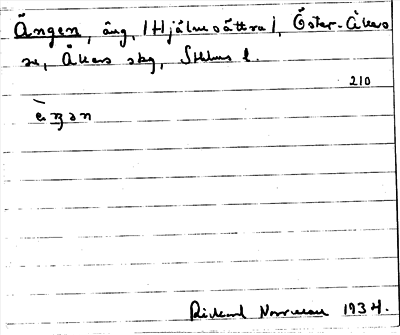 Ängen, äng, (Hjälmsättra), Öster-Åkers
sn, Åkers skg, Sthlms l.
210
è̱ŋən
Rickard Norrman 1934.